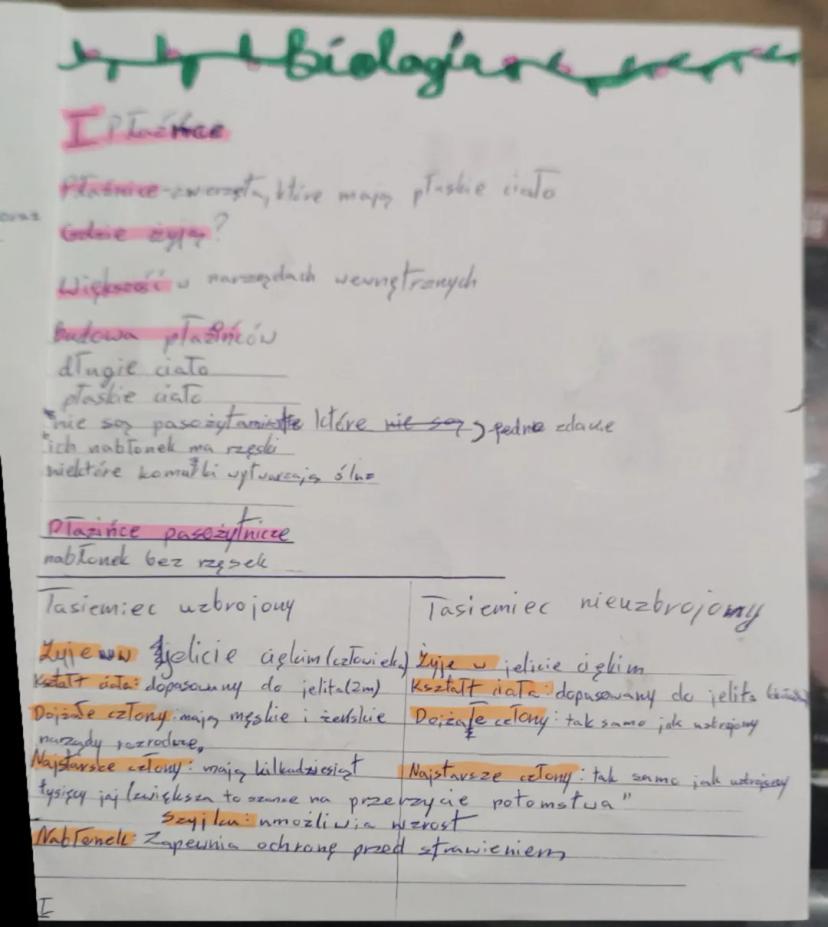 Biologia
I Płazińce
Płazińce - zwierzęta, które mają płaskie ciało
oraz
Gdzie żyją?
Większość w narządach wewnętrznych
budowa płazińców
długie ciało
płaskie ciało
nie są pasożytami które nie są jedno zdanie
ich nabłonek ma rzęski
niektóre komurki wytwarzają śluz
Płazińce pasożytnicze
nabłonek bez rzęsek
Tasiemiec uzbrojony
Tasiemiec nieuzbrojony
Żyje w jelicie ciękim (człowieka)
Żyje w jelicie ciękim
Kształt ciała: dopasowany do jelita (2m)
Kształt ciała: dopasowany do jelita
Dojżałe człony: mają męskie i żeńskie
Dojżałe człony: tak samo jak uzbrojony
narządy rozrodcze,
Najstarsze człony: mają kilkudziesiąt
Najstarsze człony: tak samo jak uzbrojony
tysięcy jaj zwiększa to szanse na przerzycie potomstwa"
Szyjka: umożliwia wzrost
Nabłonek: Zapewnia ochronę przed strawieniem
I